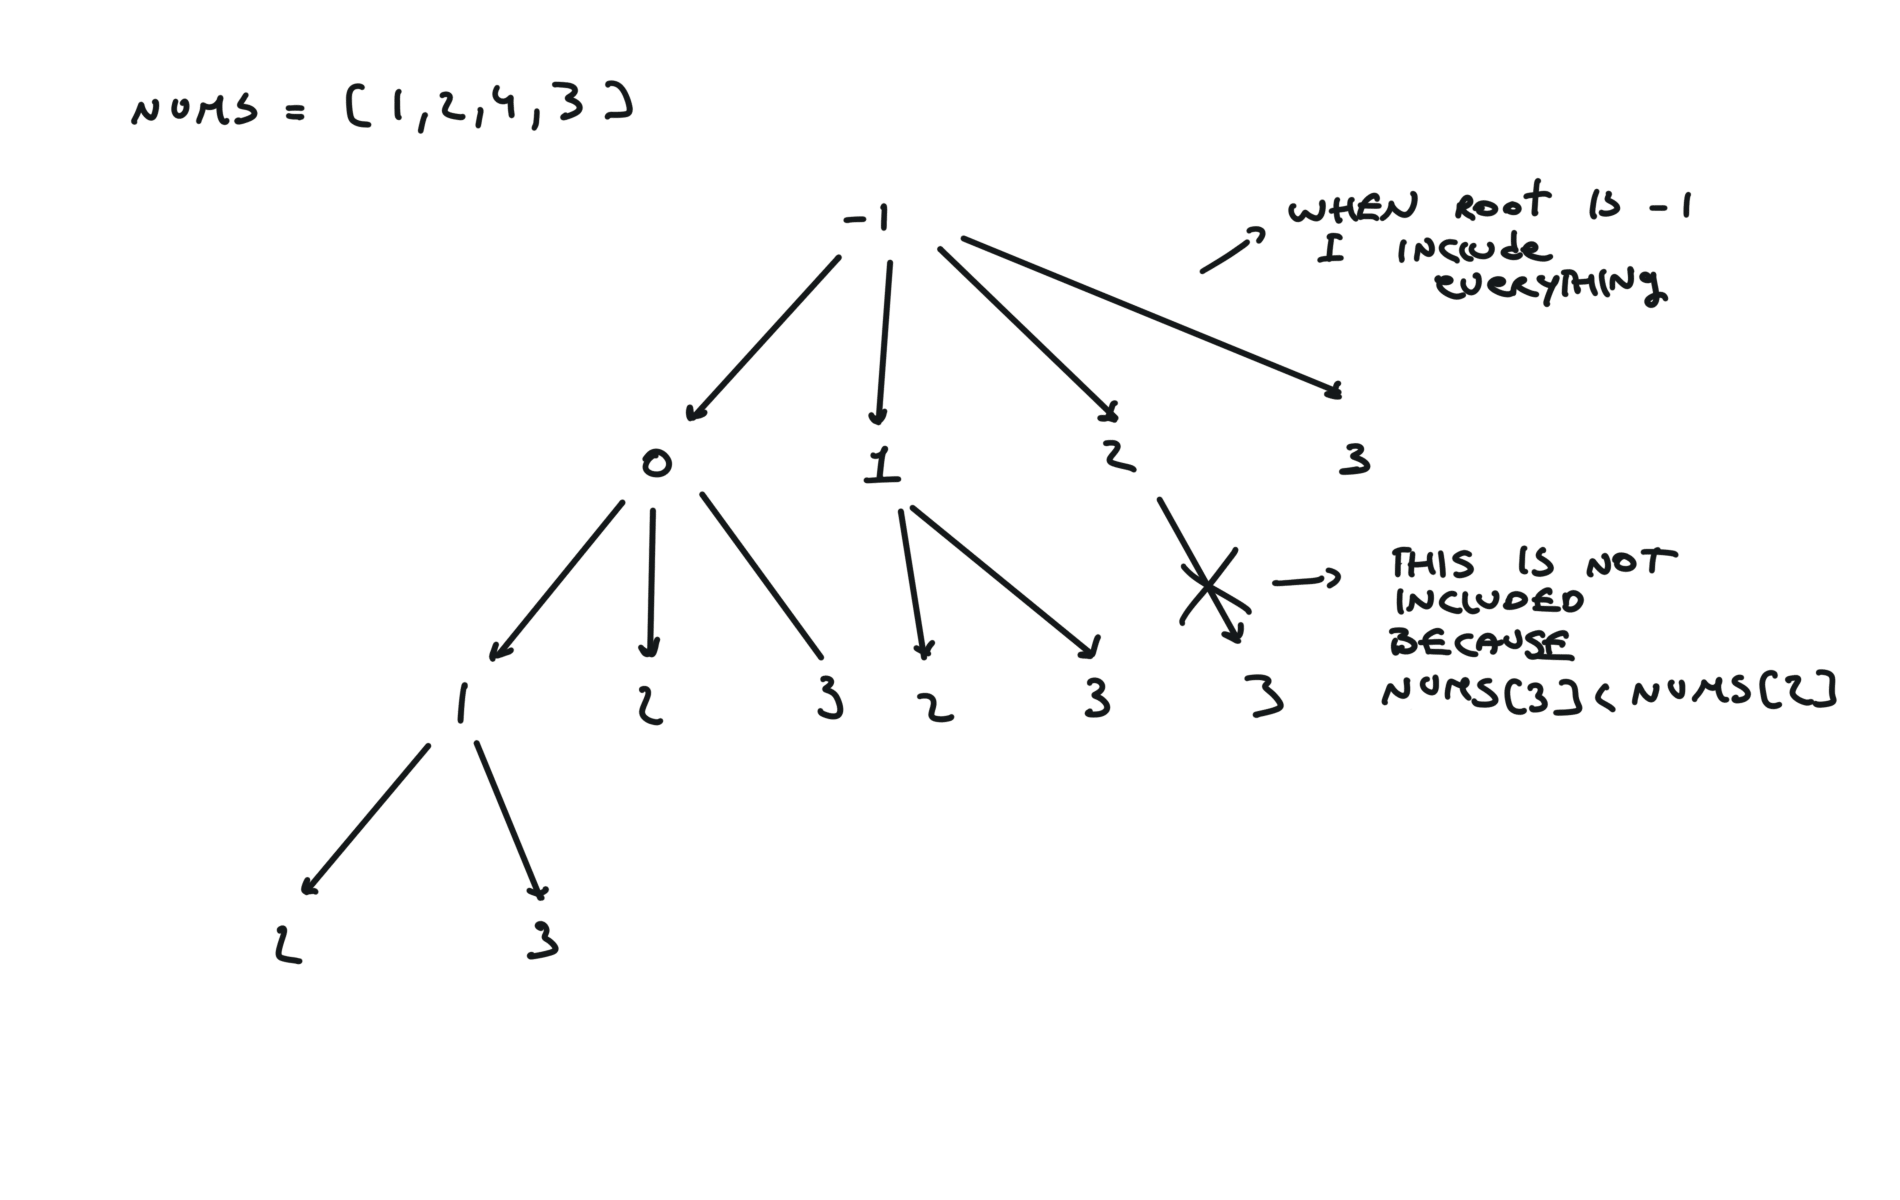 NUMS = [1,2,4,3]
-1
WHEN ROOT IS -1
I INCLUDE
EVERYTHING
0 1 2 3
THIS IS NOT
INCLUDED
BECAUSE
NUMS[3] < NUMS[2]
1 2 3 2 3 3
2 3